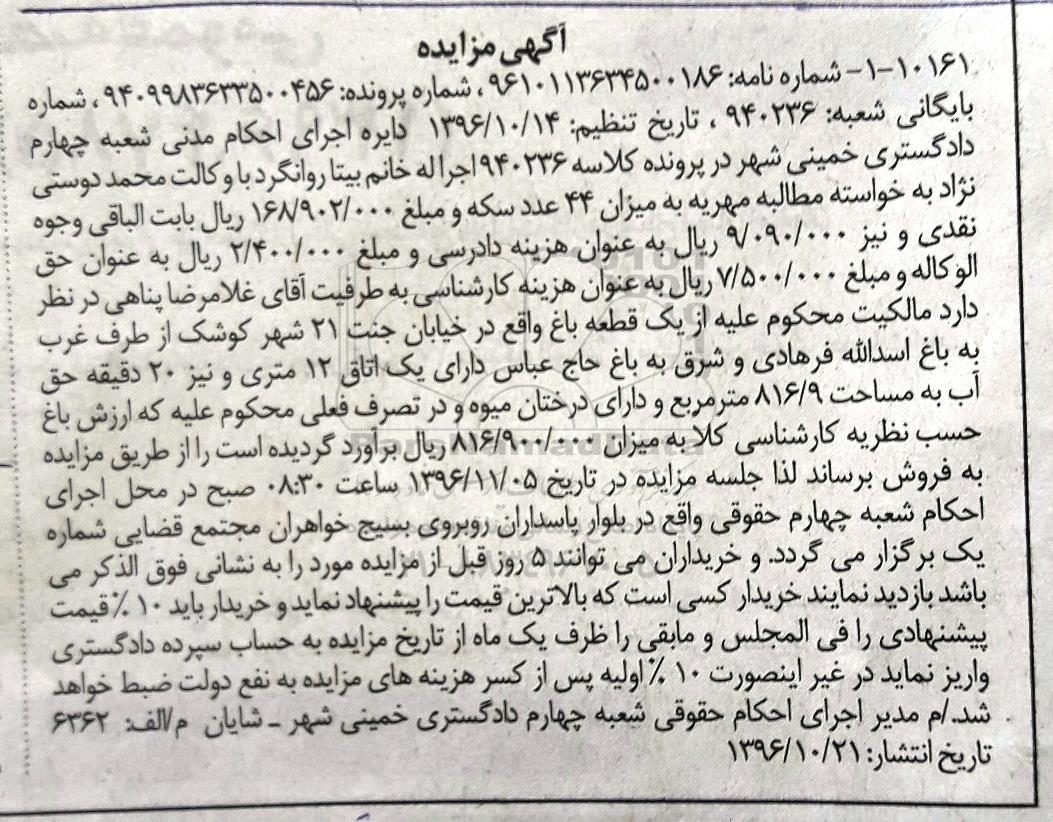 آگهی مزایده
۱۰۱۶۱-۱- شماره نامه: ۹۶۱۰۱۱۳۶۳۴۵۰۰۱۸۶، شماره پرونده: ۹۴۰۹۹۸۳۶۳۳۵۰۰۴۵۶، شماره
بایگانی شعبه: ۹۴۰۲۳۶ ، تاریخ تنظیم: ۱۳۹۶/۱۰/۱۴ دایره اجرای احکام مدنی شعبه چهارم
دادگستری خمینی شهر در پرونده کلاسه ۹۴۰۲۳۶ اجرا له خانم بیتا روانگرد با وکالت محمد دوستی
نژاد به خواسته مطالبه مهریه به میزان ۴۴ عدد سکه و مبلغ ۱۶۸/۹۰۲/۰۰۰ ریال بابت الباقی وجوه
نقدی و نیز ۹/۰۹۰/۰۰۰ ریال به عنوان هزینه دادرسی و مبلغ ۲/۴۰۰/۰۰۰ ریال به عنوان حق
الوکاله و مبلغ ۷/۵۰۰/۰۰۰ ریال به عنوان هزینه کارشناسی به طرفیت آقای غلامرضا پناهی در نظر
دارد مالکیت محکوم علیه از یک قطعه باغ واقع در خیابان جنت ۲۱ شهر کوشک از طرف غرب
به باغ اسدالله فرهادی و شرق به باغ حاج عباس دارای یک اتاق ۱۲ متری و نیز ۲۰ دقیقه حق
آب به مساحت ۸۱۶/۹ مترمربع و دارای درختان میوه و در تصرف فعلی محکوم علیه که ارزش باغ
حسب نظریه کارشناسی کلا به میزان ۸۱۶/۹۰۰/۰۰۰ ریال برآورد گردیده است را از طریق مزایده
به فروش برساند لذا جلسه مزایده در تاریخ ۱۳۹۶/۱۱/۰۵ ساعت ۰۸:۳۰ صبح در محل اجرای
احکام شعبه چهارم حقوقی واقع در بلوار پاسداران روبروی بسیج خواهران مجتمع قضایی شماره
یک برگزار می گردد. و خریداران می توانند ۵ روز قبل از مزایده مورد را به نشانی فوق الذکر می
باشد بازدید نمایند خریدار کسی است که بالاترین قیمت را پیشنهاد نماید و خریدار باید ۱۰٪ قیمت
پیشنهادی را فی المجلس و مابقی را ظرف یک ماه از تاریخ مزایده به حساب سپرده دادگستری
واریز نماید در غیر اینصورت ۱۰٪ اولیه پس از کسر هزینه های مزایده به نفع دولت ضبط خواهد
شد./م مدیر اجرای احکام حقوقی شعبه چهارم دادگستری خمینی شهر ـ شایان م/الف: ۶۳۶۲
تاریخ انتشار: ۱۳۹۶/۱۰/۲۱